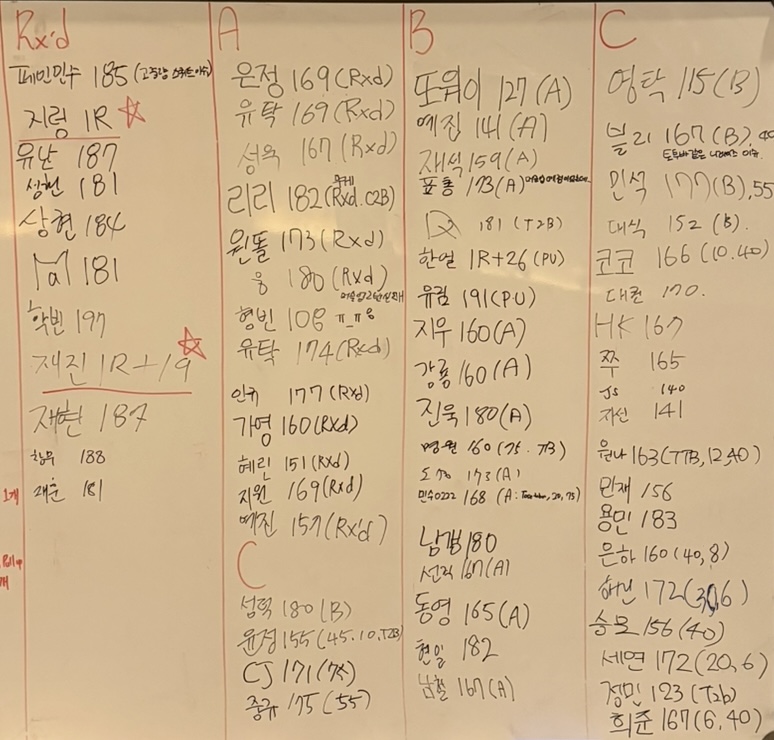 Rx'd
페민민수 185
지렁 1R
유난 187
성현 181
상현 184
181
학빈 197
재진 1R+19
재현 187
188
재훈 181
1개
A
은정 169 (Rxd)
유탁 169 (Rxd)
성욱 167 (Rxd)
리리 182 (Rxd. C2B)
원돌 173 (Rxd)
웅 180 (Rxd)
형빈 108 ㅠ_ㅠ
유탁 174 (Rxd)
인규 177 (Rxd)
가영 160 (Rxd)
혜린 151 (Rxd)
지원 169 (Rxd)
예진 157 (Rx'd)
C
성혁 180 (B)
윤정 155 (45.10.T2B)
CJ 171
중규 175 (55)
B
또위이 127 (A)
예진 141 (A)
재석 159 (A)
표통 173 (A)
181 (T2B)
한얼 1R+26 (PU)
유림 191 (PU)
지우 160 (A)
강룡 160 (A)
진욱 180 (A)
명원 160
173 (A)
민수0222 168
남궁 180
선릭 167 (A)
동영 165 (A)
현일 182
남철 167 (A)
C
영탁 115 (B)
블리 167 (B).40
민석 177 (B), 55
대식 152 (B).
코코 166 (10.40)
대권 170.
HK 167
쭈 165
JS 140
자선 141
원나 163 (TTB, 12, 40)
민재 156
용민 183
은하 160 (40, 8)
해닌 172
승모 156 (40)
세연 172 (20, 6)
정민 123 (T2b)
희준 167 (6, 40)